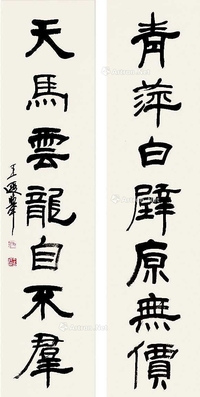 青萍白璧原無價
天馬雲龍自不羣
王遐舉